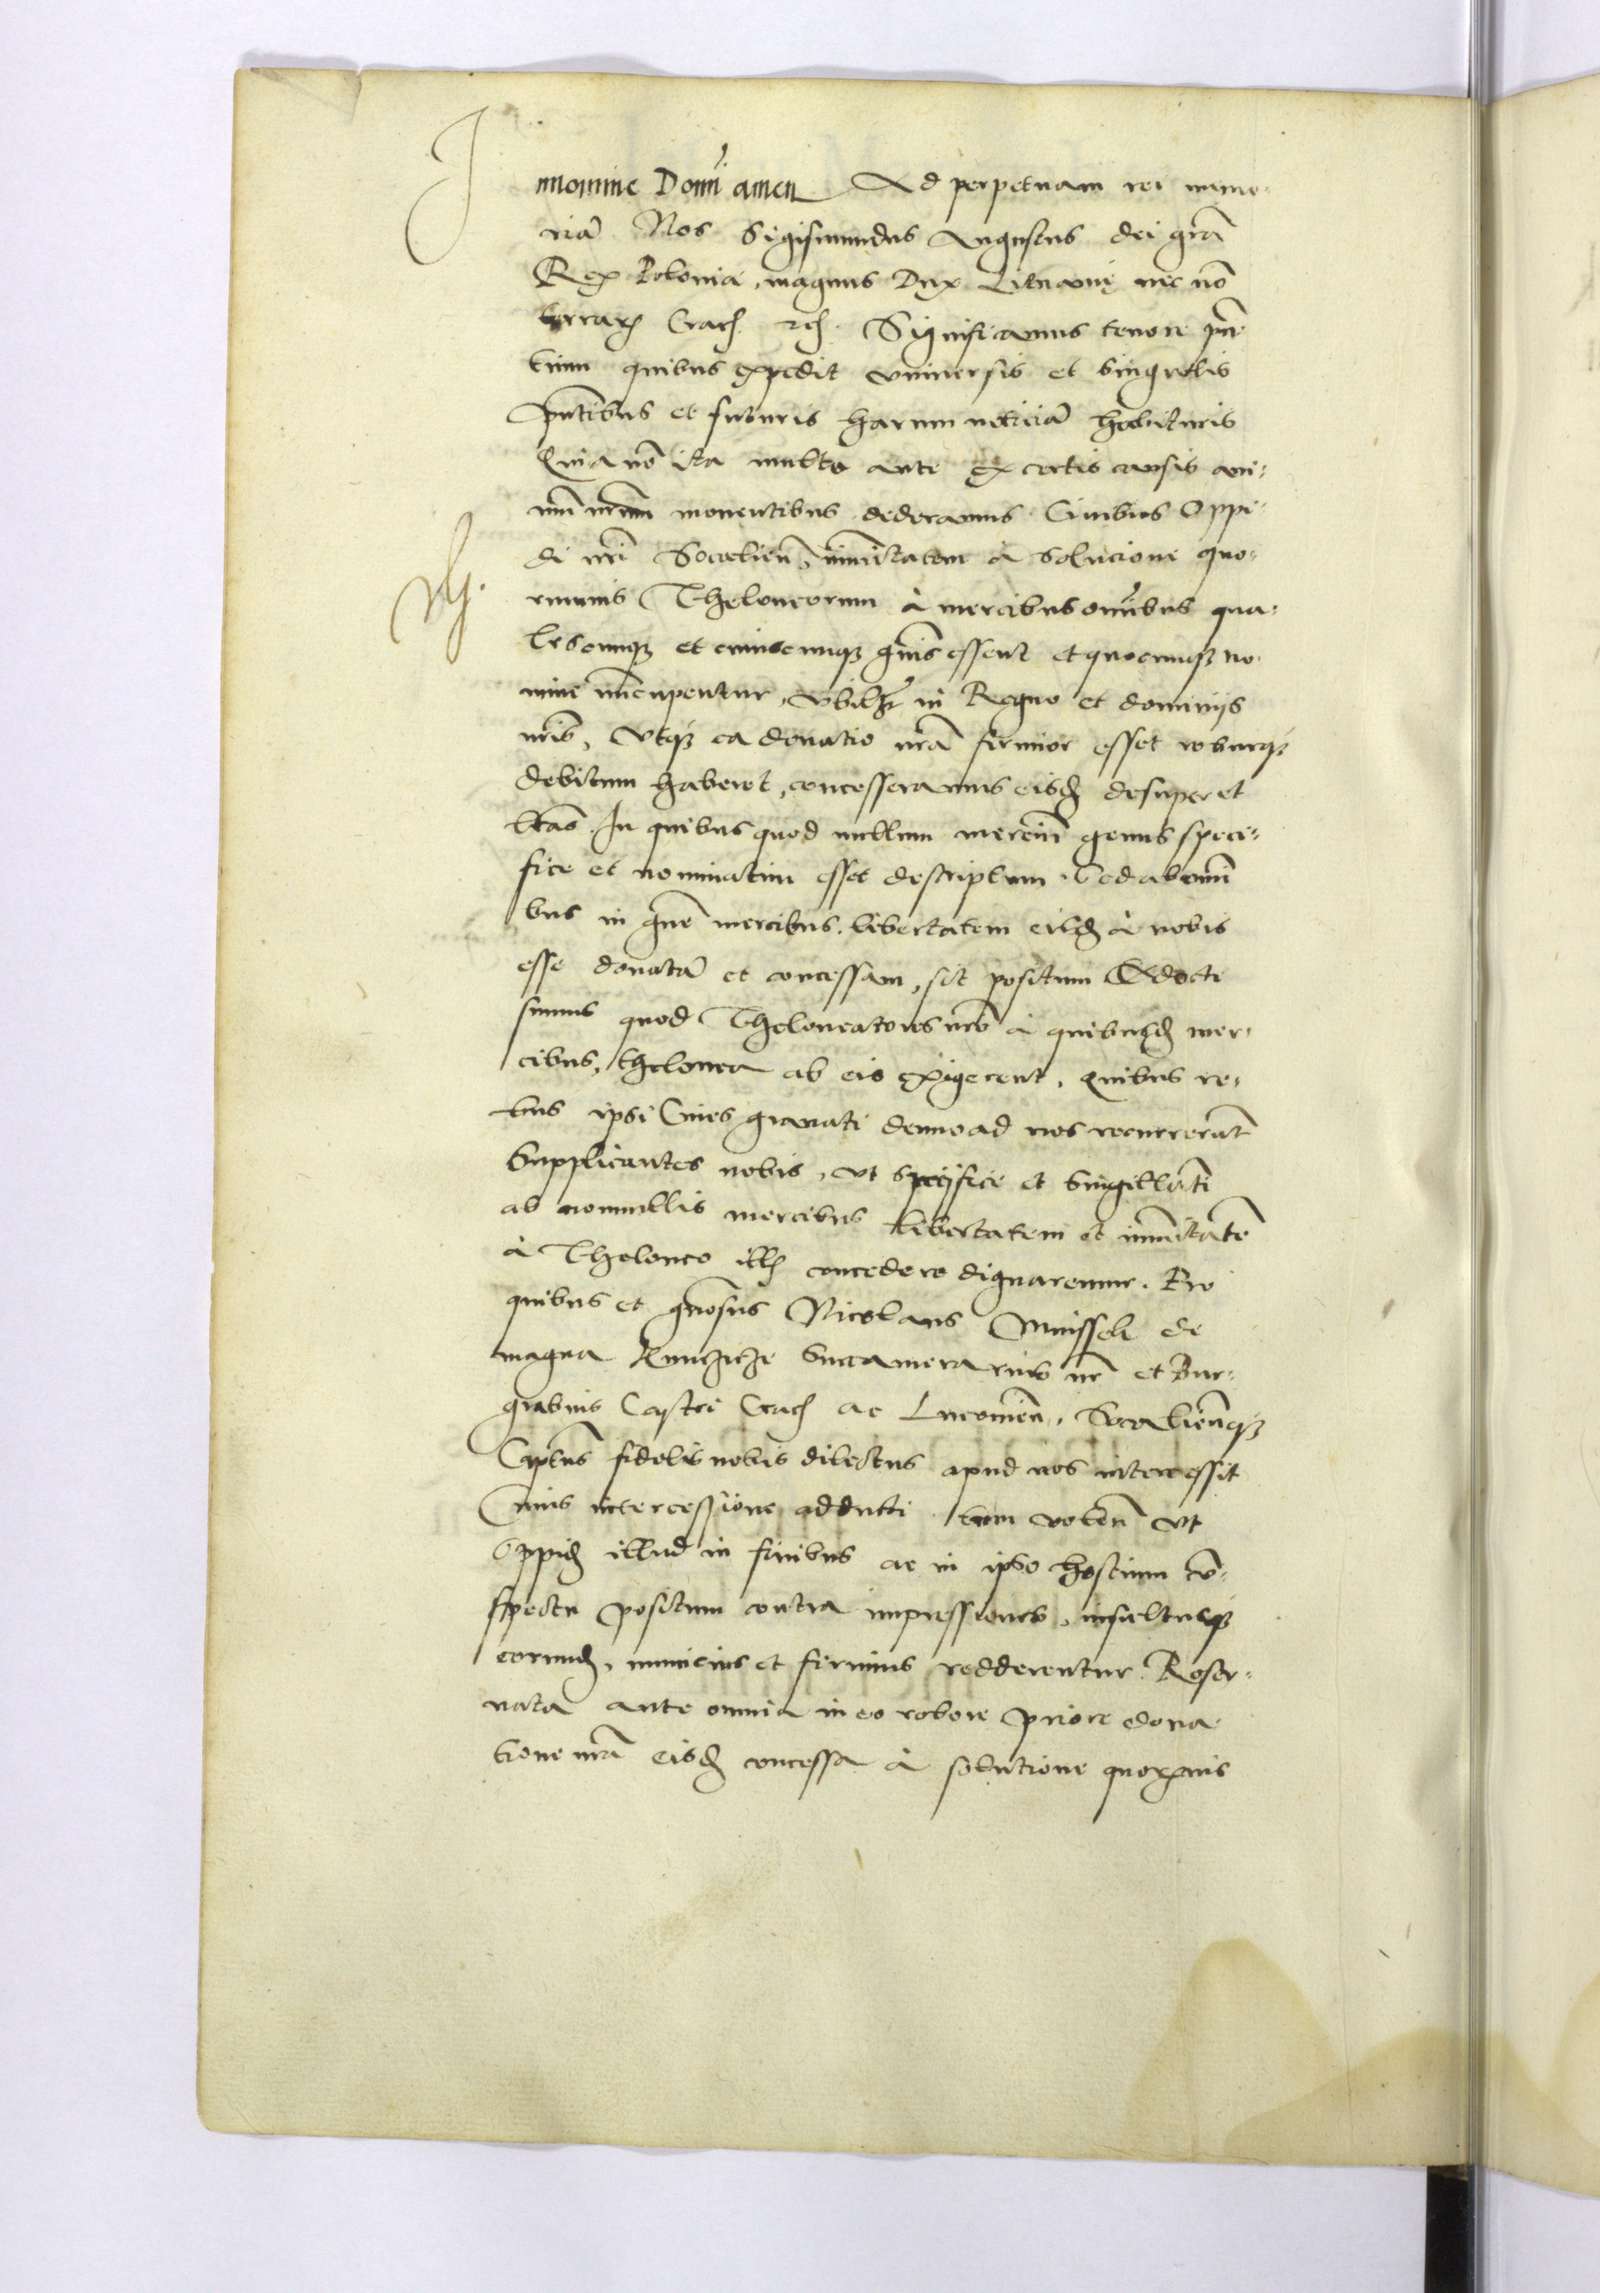 In nomine Domi amen Ad perpetuam rei memo-
riā Nos Sigismundus Augustus dei grā
Rex Polonia, magnus Dux Lituaniȩ nec nō
terrarꝫ Cracꝫ etcꝫ. Significamus tenore pn̄
tium quibus expedit vniuersis et singulis
pn̄tibus et futuris harum noticiā habituris
Quia nō ita multo ante ex certis causis ani-
mū nr̄um mouentibus dederamus Ciuibus Oppi-
di nr̄i Socalien̄, immūitatem à Solucione quo-
rumuis Theloneorum à mercibus omībus qua-
lescumqꝫ et cuiuscumqꝫ gn̄is essent et quocumqꝫ no
mine nūcupentur, vbilꝫ in Regno et dominijs
nr̄is, Vtqꝫ ea donatio nr̄a firmior esset roburqꝫ
debitum haberet, concesseramus eisdꝫ desuper et
lr̄as. In quibus quod nullum merciū genus speci-
fice et nominatim esset descriptum. Sed ab omī
bus in gn̄e mercibus. libertatem eisdꝫ à nobis
esse donatā et concessam, sit positum Edocti
sumus quod Theloneatores nr̄i à quibusdꝫ mer-
cibus, thelonea ab eis exigerent. Quibus re-
bus ipsi Ciues grauati denuo ad nos recurrerūt
Supplicantes nobis, vt specifice et singillatī
ab nonnullis mercibus libertatem et immūitatē
à Theloneo illꝫ concedere dignaremur. Pro
quibus et gn̄osus Nicolaus de
magna Kunczicze Succamerarius nr̄ et Bur-
grabius Castri Cracꝫ ac, Socalien̄qꝫ
Capts̄ fidelis nobis dilectus apud nos intercessit
Cuius intercessione adducti tum volen̄ vt
Oppidꝫ illud in finibus ac in ipso hostium cō-
spectu positum contra impressiones, insultusqꝫ
eorundꝫ, municius et firmius redderentur. Reser-
uata ante omnia in eo robore priore dona
tione nr̄a eisdꝫ concessa à solutione quorꝫuis